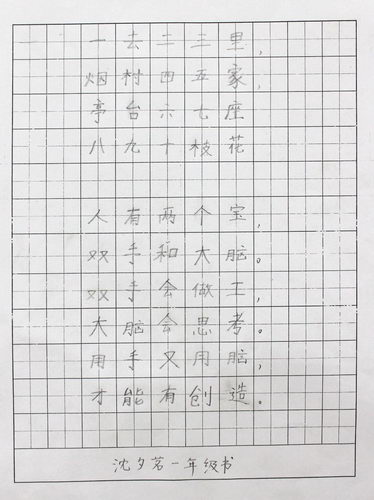 一去二三里,
烟村四五家,
亭台六七座
八九十枝花
人有两个宝,
双手和大脑。
双手会做工,
大脑会思考。
用手又用脑,
才能有创造。
沈夕茗一年级书